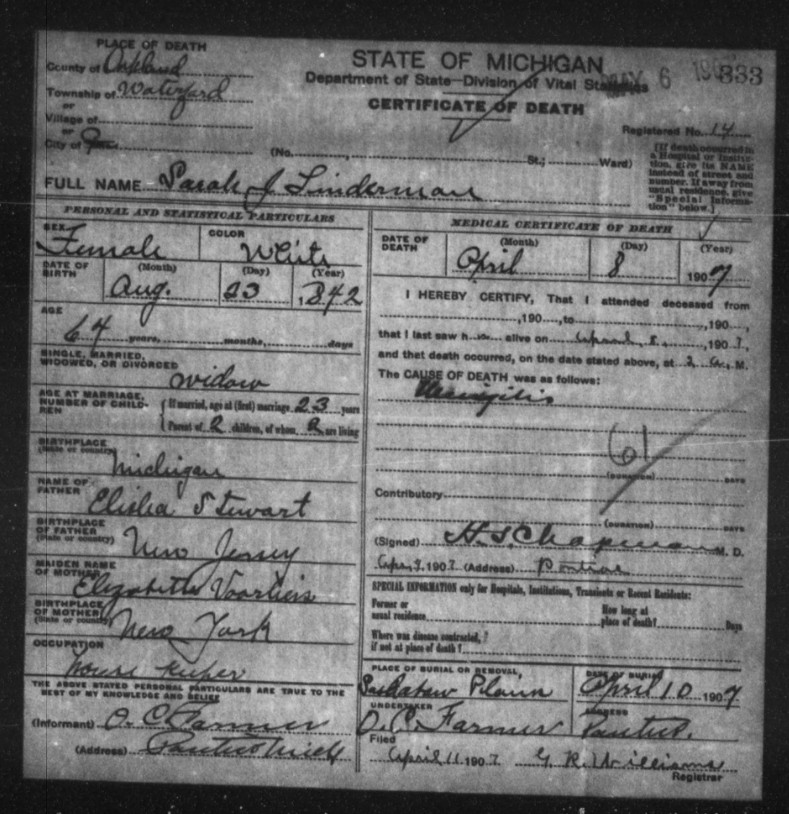 PLACE OF DEATH
County of Oakland
Township of Waterford
or
Village of
or
City of
STATE OF MICHIGAN
Department of State—Division of Vital Statistics
MAY 6 190 333
CERTIFICATE OF DEATH
Registered No. 14
(No. St.; Ward)
[If death occurred in a Hospital or Institution, give its NAME instead of street and number. If away from usual residence, give "Special Information" below.]
FULL NAME Sarah J Linderman
PERSONAL AND STATISTICAL PARTICULARS
SEX Female
COLOR White
DATE OF BIRTH (Month) Aug. (Day) 23 (Year) 1842
AGE 64 years, months, days
SINGLE, MARRIED, WIDOWED, OR DIVORCED
widow
AGE AT MARRIAGE, NUMBER OF CHILDREN
If married, age at (first) marriage 23 years
Parent of 2 children, of whom 2 are living
BIRTHPLACE (State or country)
Michigan
NAME OF FATHER
Elisha Stewart
BIRTHPLACE OF FATHER (State or country)
New Jersey
MAIDEN NAME OF MOTHER
Elizabeth Voorheis
BIRTHPLACE OF MOTHER (State or country)
New York
OCCUPATION
house keeper
THE ABOVE STATED PERSONAL PARTICULARS ARE TRUE TO THE BEST OF MY KNOWLEDGE AND BELIEF
(Informant) O. C. Farmer
(Address)
MEDICAL CERTIFICATE OF DEATH
DATE OF DEATH (Month) April (Day) 8 (Year) 1907
I HEREBY CERTIFY, That I attended deceased from
, 190 , to , 190 ,
that I last saw h alive on April 8, 1907,
and that death occurred, on the date stated above, at 2 a. M.
The CAUSE OF DEATH was as follows:
61
(DURATION) DAYS
Contributory
(DURATION) DAYS
(Signed) H. S. Chapman M. D.
Apr. 9, 1907 (Address) Pontiac
SPECIAL INFORMATION only for Hospitals, Institutions, Transients or Recent Residents:
Former or usual residence
How long at place of death? Days
Where was disease contracted, if not at place of death?
PLACE OF BURIAL OR REMOVAL,
Plain
DATE OF BURIAL
April 10 1907
UNDERTAKER
O. C. Farmer
ADDRESS
Filed
April 11 1907 G. R. Williams
Registrar